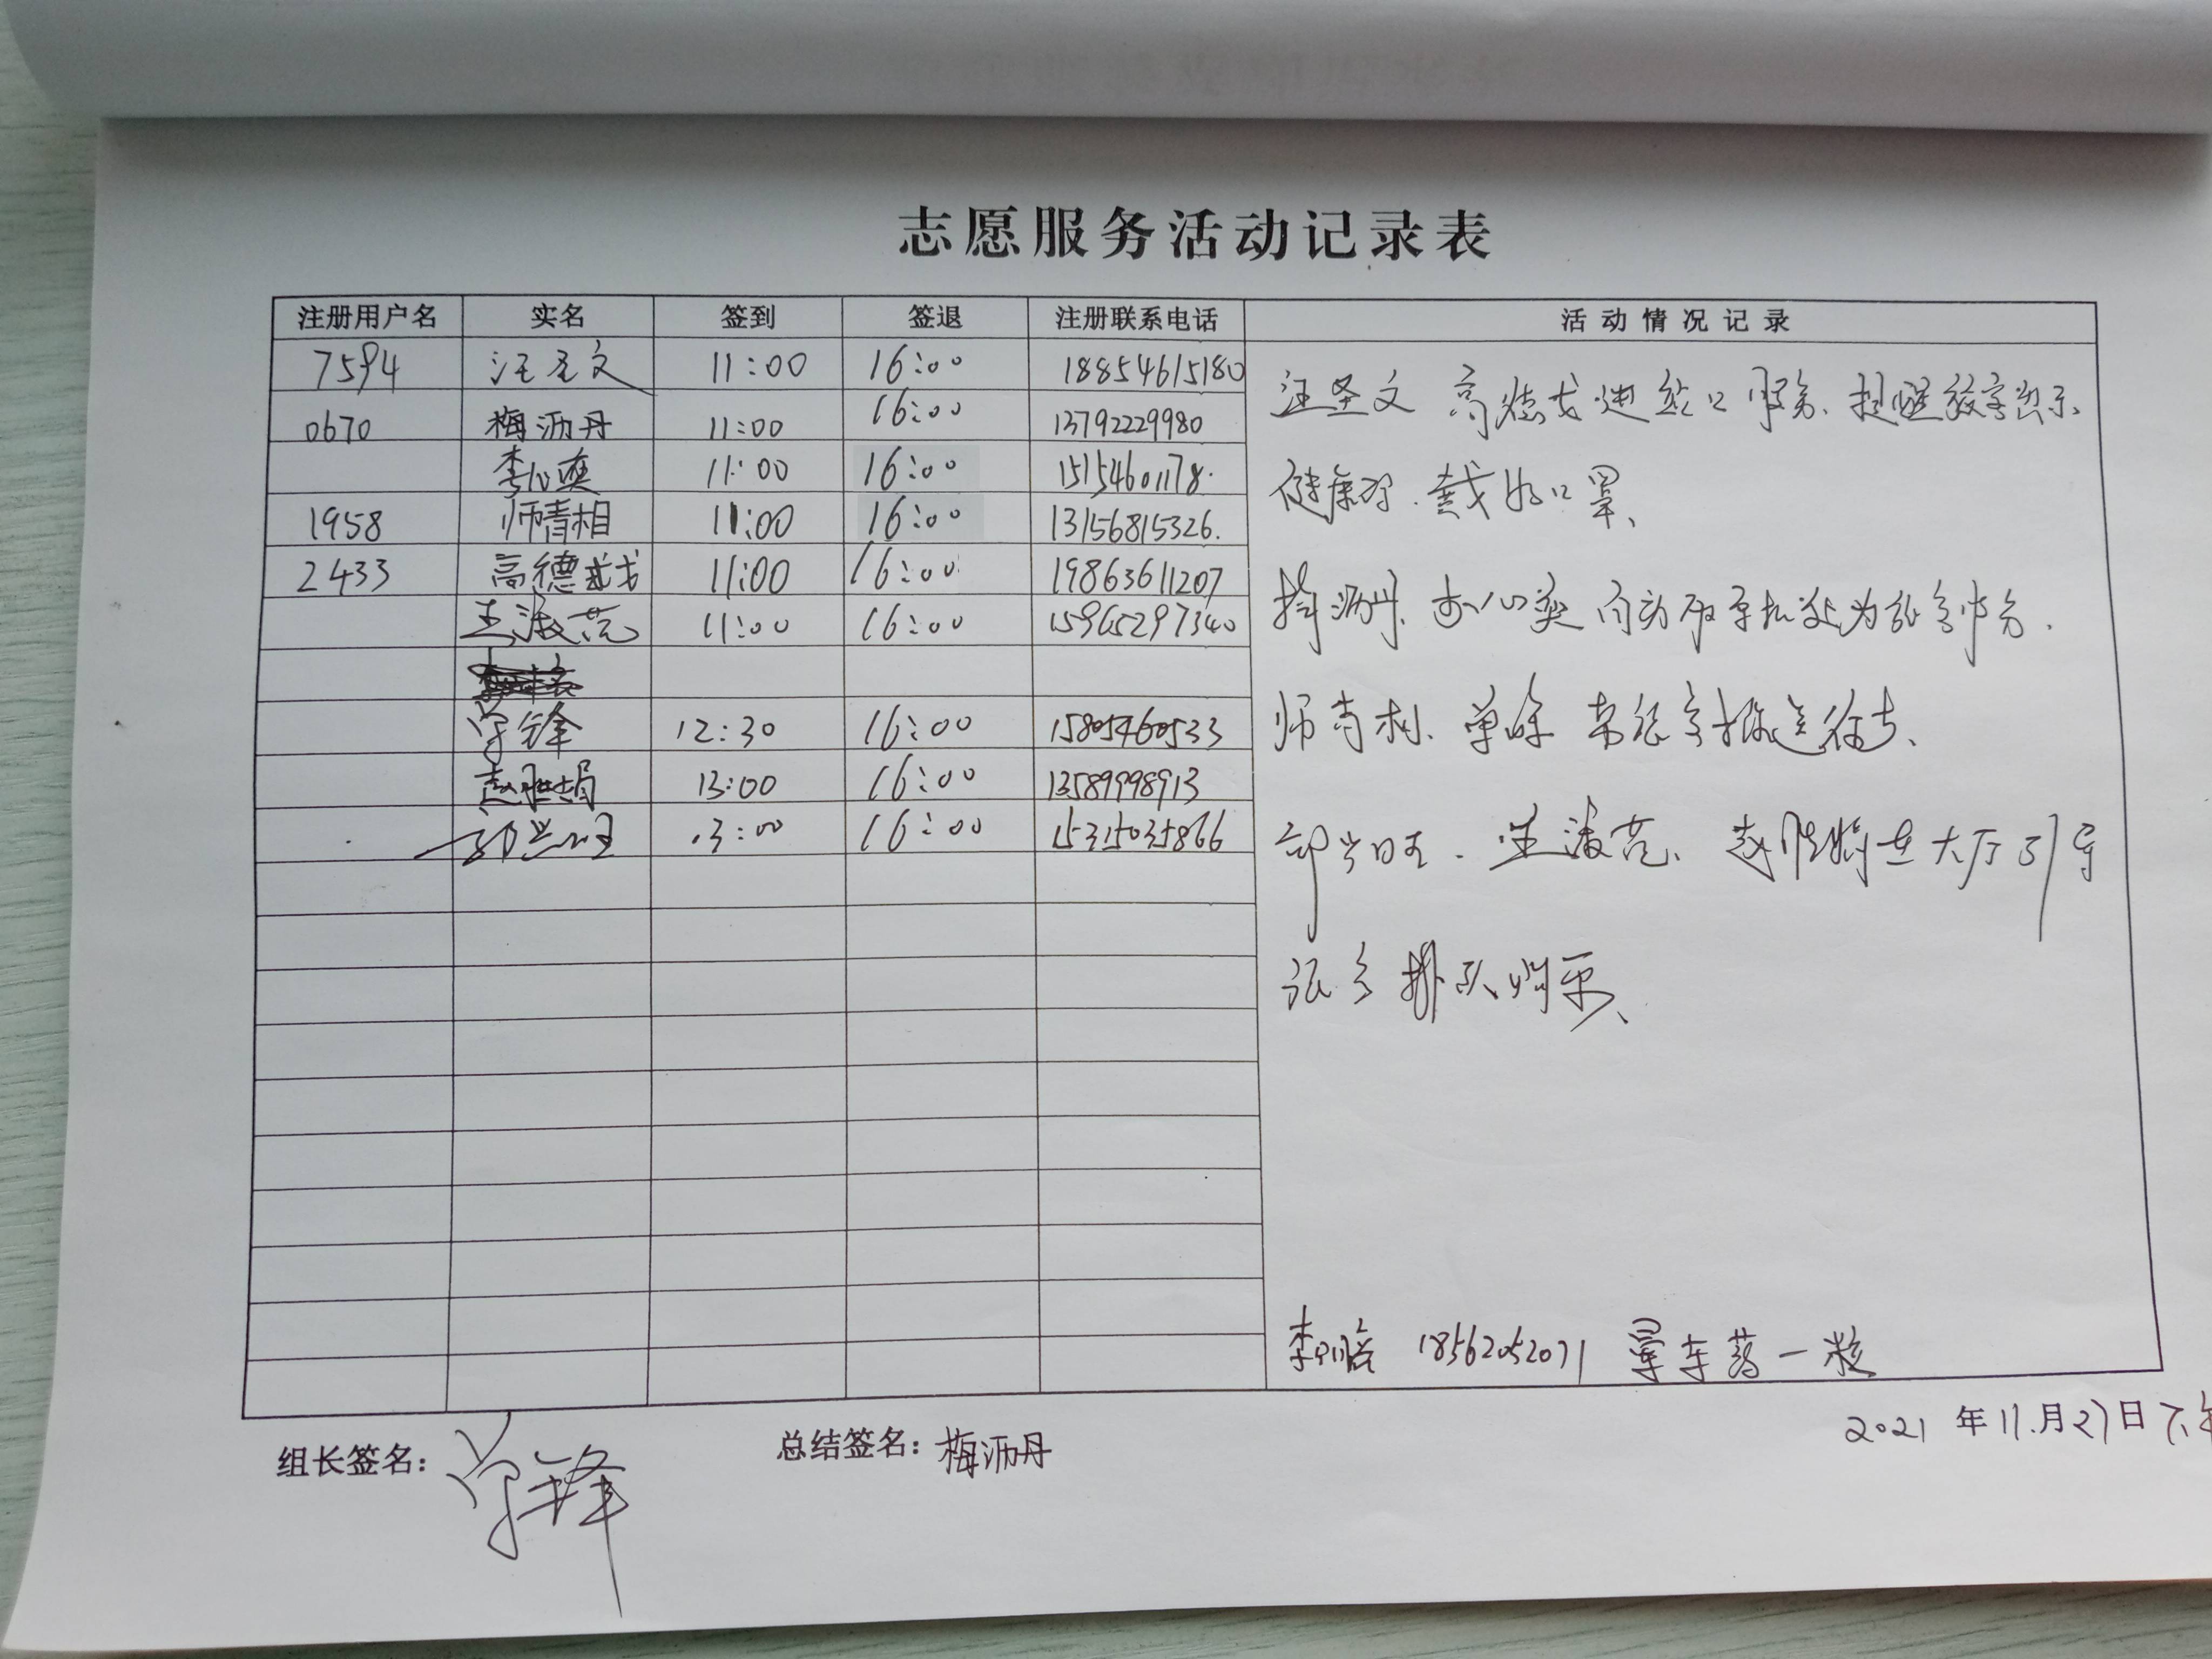 志愿服务活动记录表
注册用户名 实名 签到 签退 注册联系电话 活动情况记录
7594 汪圣文 11:00 16:00 18854615180
0670 梅沥丹 11:00 16:00 13792229980
李心爽 11:00 16:00 15154601178.
1958 师青相 11:00 16:00 13156815326.
2433 高德戈 11:00 16:00 19863611207
王淑范 11:00 16:00 15965297340
单锋 12:30 16:00 15805460533
赵胜娟 13:00 16:00 13589998913
13:00 16:00 15315035866
汪圣文 高德戈进站口服务、提醒旅客出示
健康码.戴好口罩、
梅沥丹、李心爽 自动取票机处为旅客服务.
师青相、单锋
王淑范、赵胜娟在大厅引导
旅客排队购票、
18562052071 晕车药一粒
组长签名: 单锋
总结签名: 梅沥丹
2021年11.月27日下午